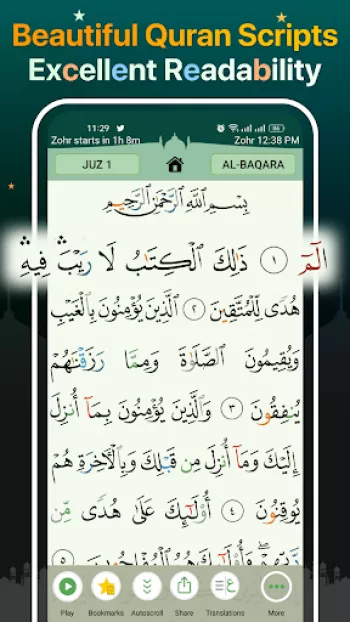 Beautiful Quran Scripts
Excellent Readability
11:29
86
Zohr starts in 1h 8m
Zohr 12:38 PM
JUZ 1
AL-BAQARA
بِسْمِ اللَّهِ الرَّحْمَٰنِ الرَّحِيمِ
الٓمٓ ١ ذَٰلِكَ الْكِتَٰبُ لَا رَيْبَ ۛ فِيهِ ۛ
هُدًى لِّلْمُتَّقِينَ ٢ الَّذِينَ يُؤْمِنُونَ بِالْغَيْبِ
وَيُقِيمُونَ الصَّلَوٰةَ وَمِمَّا رَزَقْنَٰهُمْ
يُنفِقُونَ ٣ وَالَّذِينَ يُؤْمِنُونَ بِمَآ أُنزِلَ
إِلَيْكَ وَمَآ أُنزِلَ مِن قَبْلِكَ وَبِالْءَاخِرَةِ هُمْ
يُوقِنُونَ ٤ أُو۟لَٰٓئِكَ عَلَىٰ هُدًى مِّن
رَّبِّهِمْ ۖ وَأُو۟لَٰٓئِكَ هُمُ الْمُفْلِحُونَ ٥
Play
Bookmarks
Autoscroll
Share
Translations
More